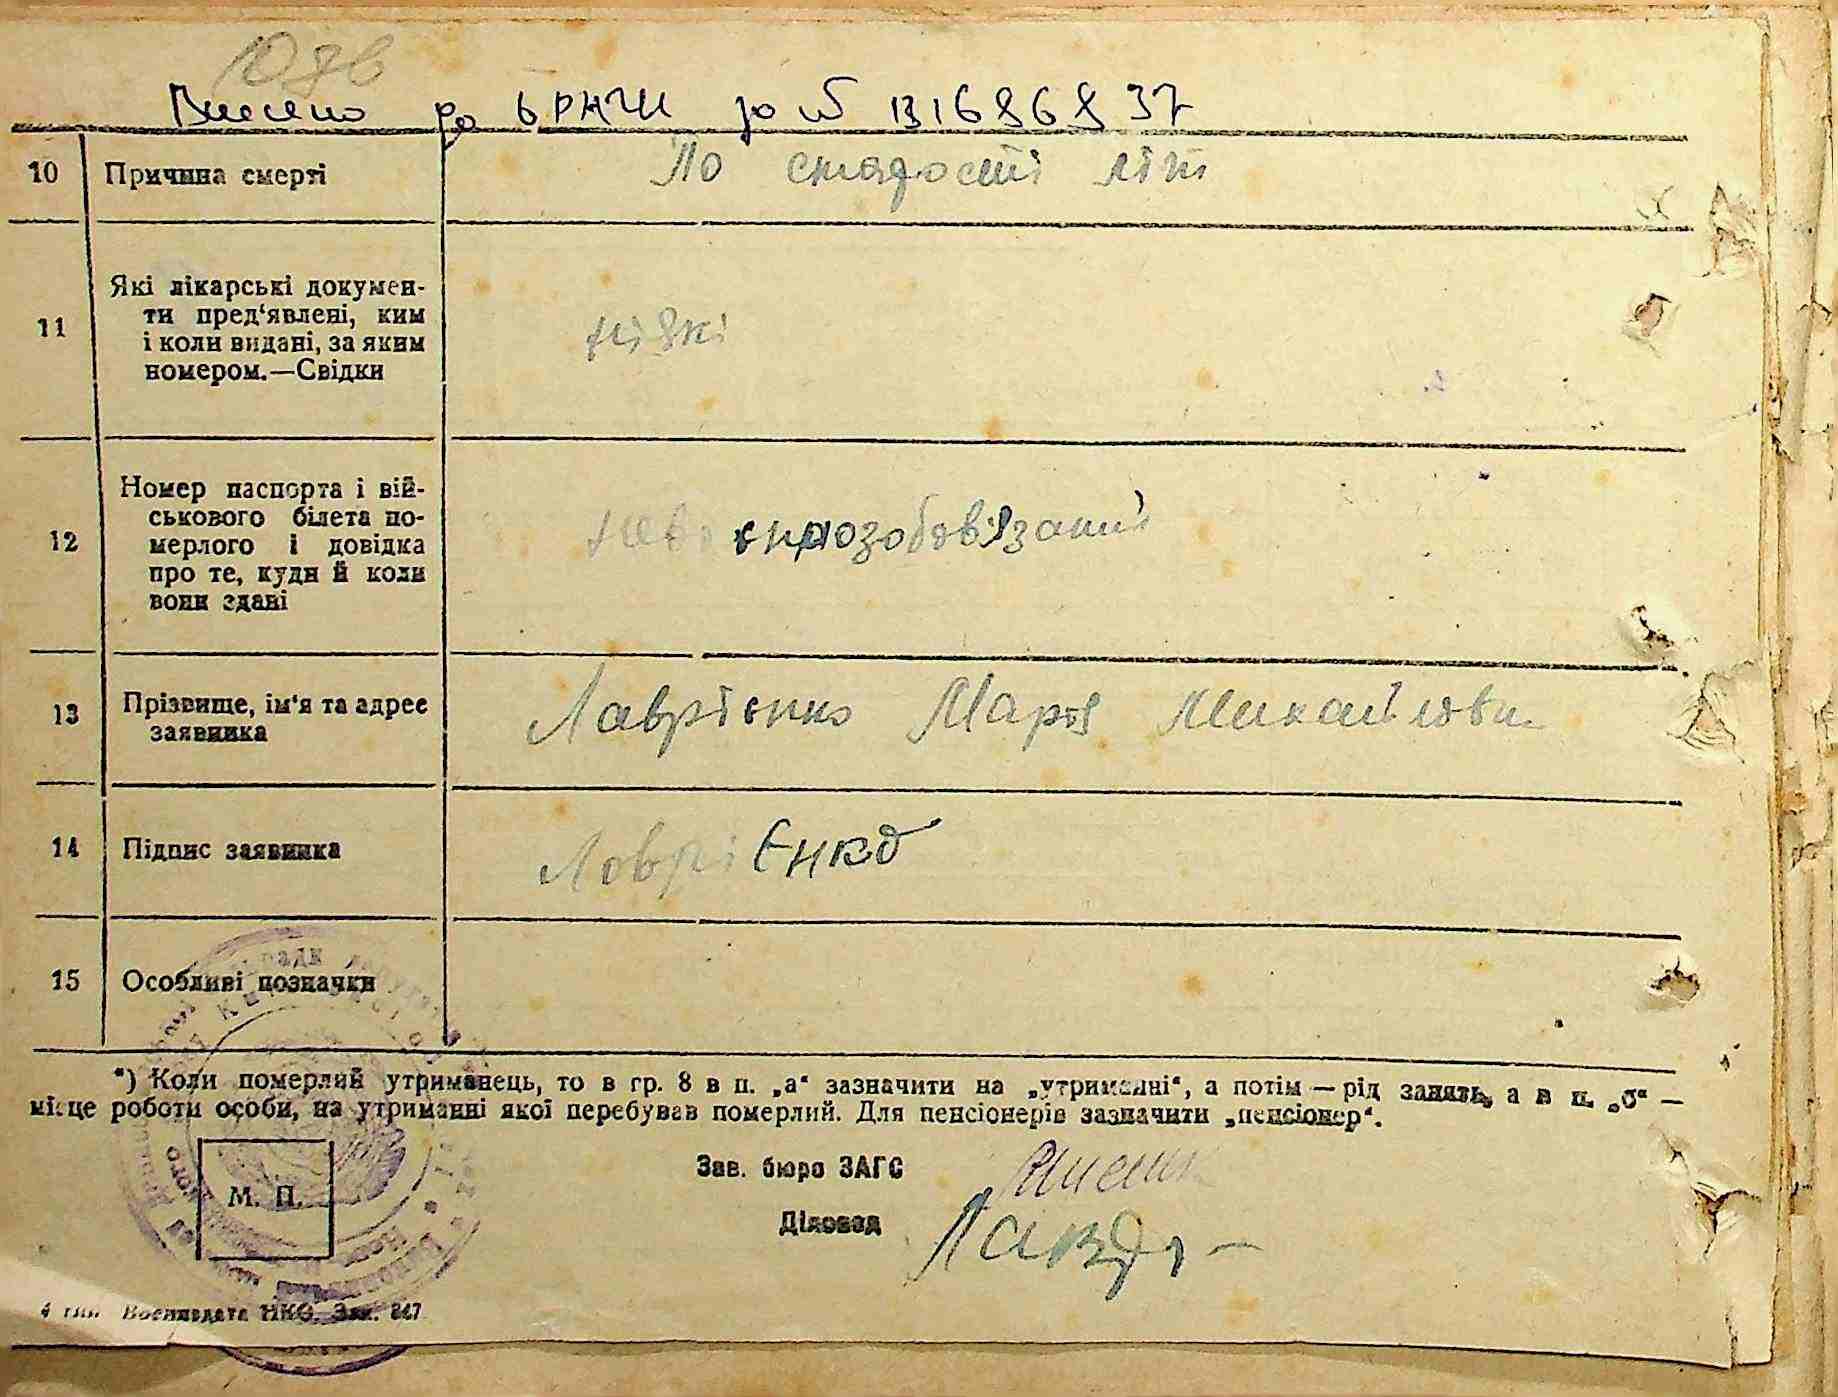 Внесено до ЬРАЧИ за № 131686837
10 Причина смерті По старості літ
11 Які лікарські докумен-
ти пред‘явлені, ким
і коли видані, за яким
номером.—Свідки
ніякі
12 Номер паспорта і вій-
ськового білета по-
мерлого і довідка
про те, куди й коли
вони здані
невоєннозобов'язаний
13 Прізвище, ім‘я та адрес
заявника
Лаврієнко Марія Михайлов
14 Підпис заявника Лаврієнко
15 Особливі позначки
*) Коли померлий утриманець, то в гр. 8 в п. „а“ зазначити на „утриманні“, а потім — рід занять, а в п. „б“ —
місце роботи особи, на утриманні якої перебував померлий. Для пенсіонерів зазначити „пенсіонер“.
Зав. бюро ЗАГС
М. П.
Діловод
4 тип Воениздата НКО. Зак. 847